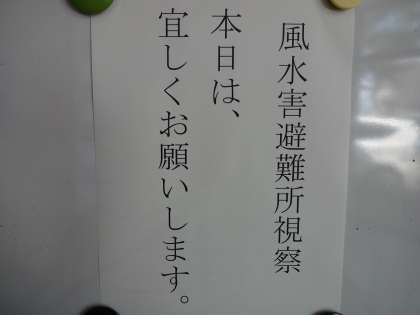 風水害避難所視察
本日は、
宜しくお願いします。